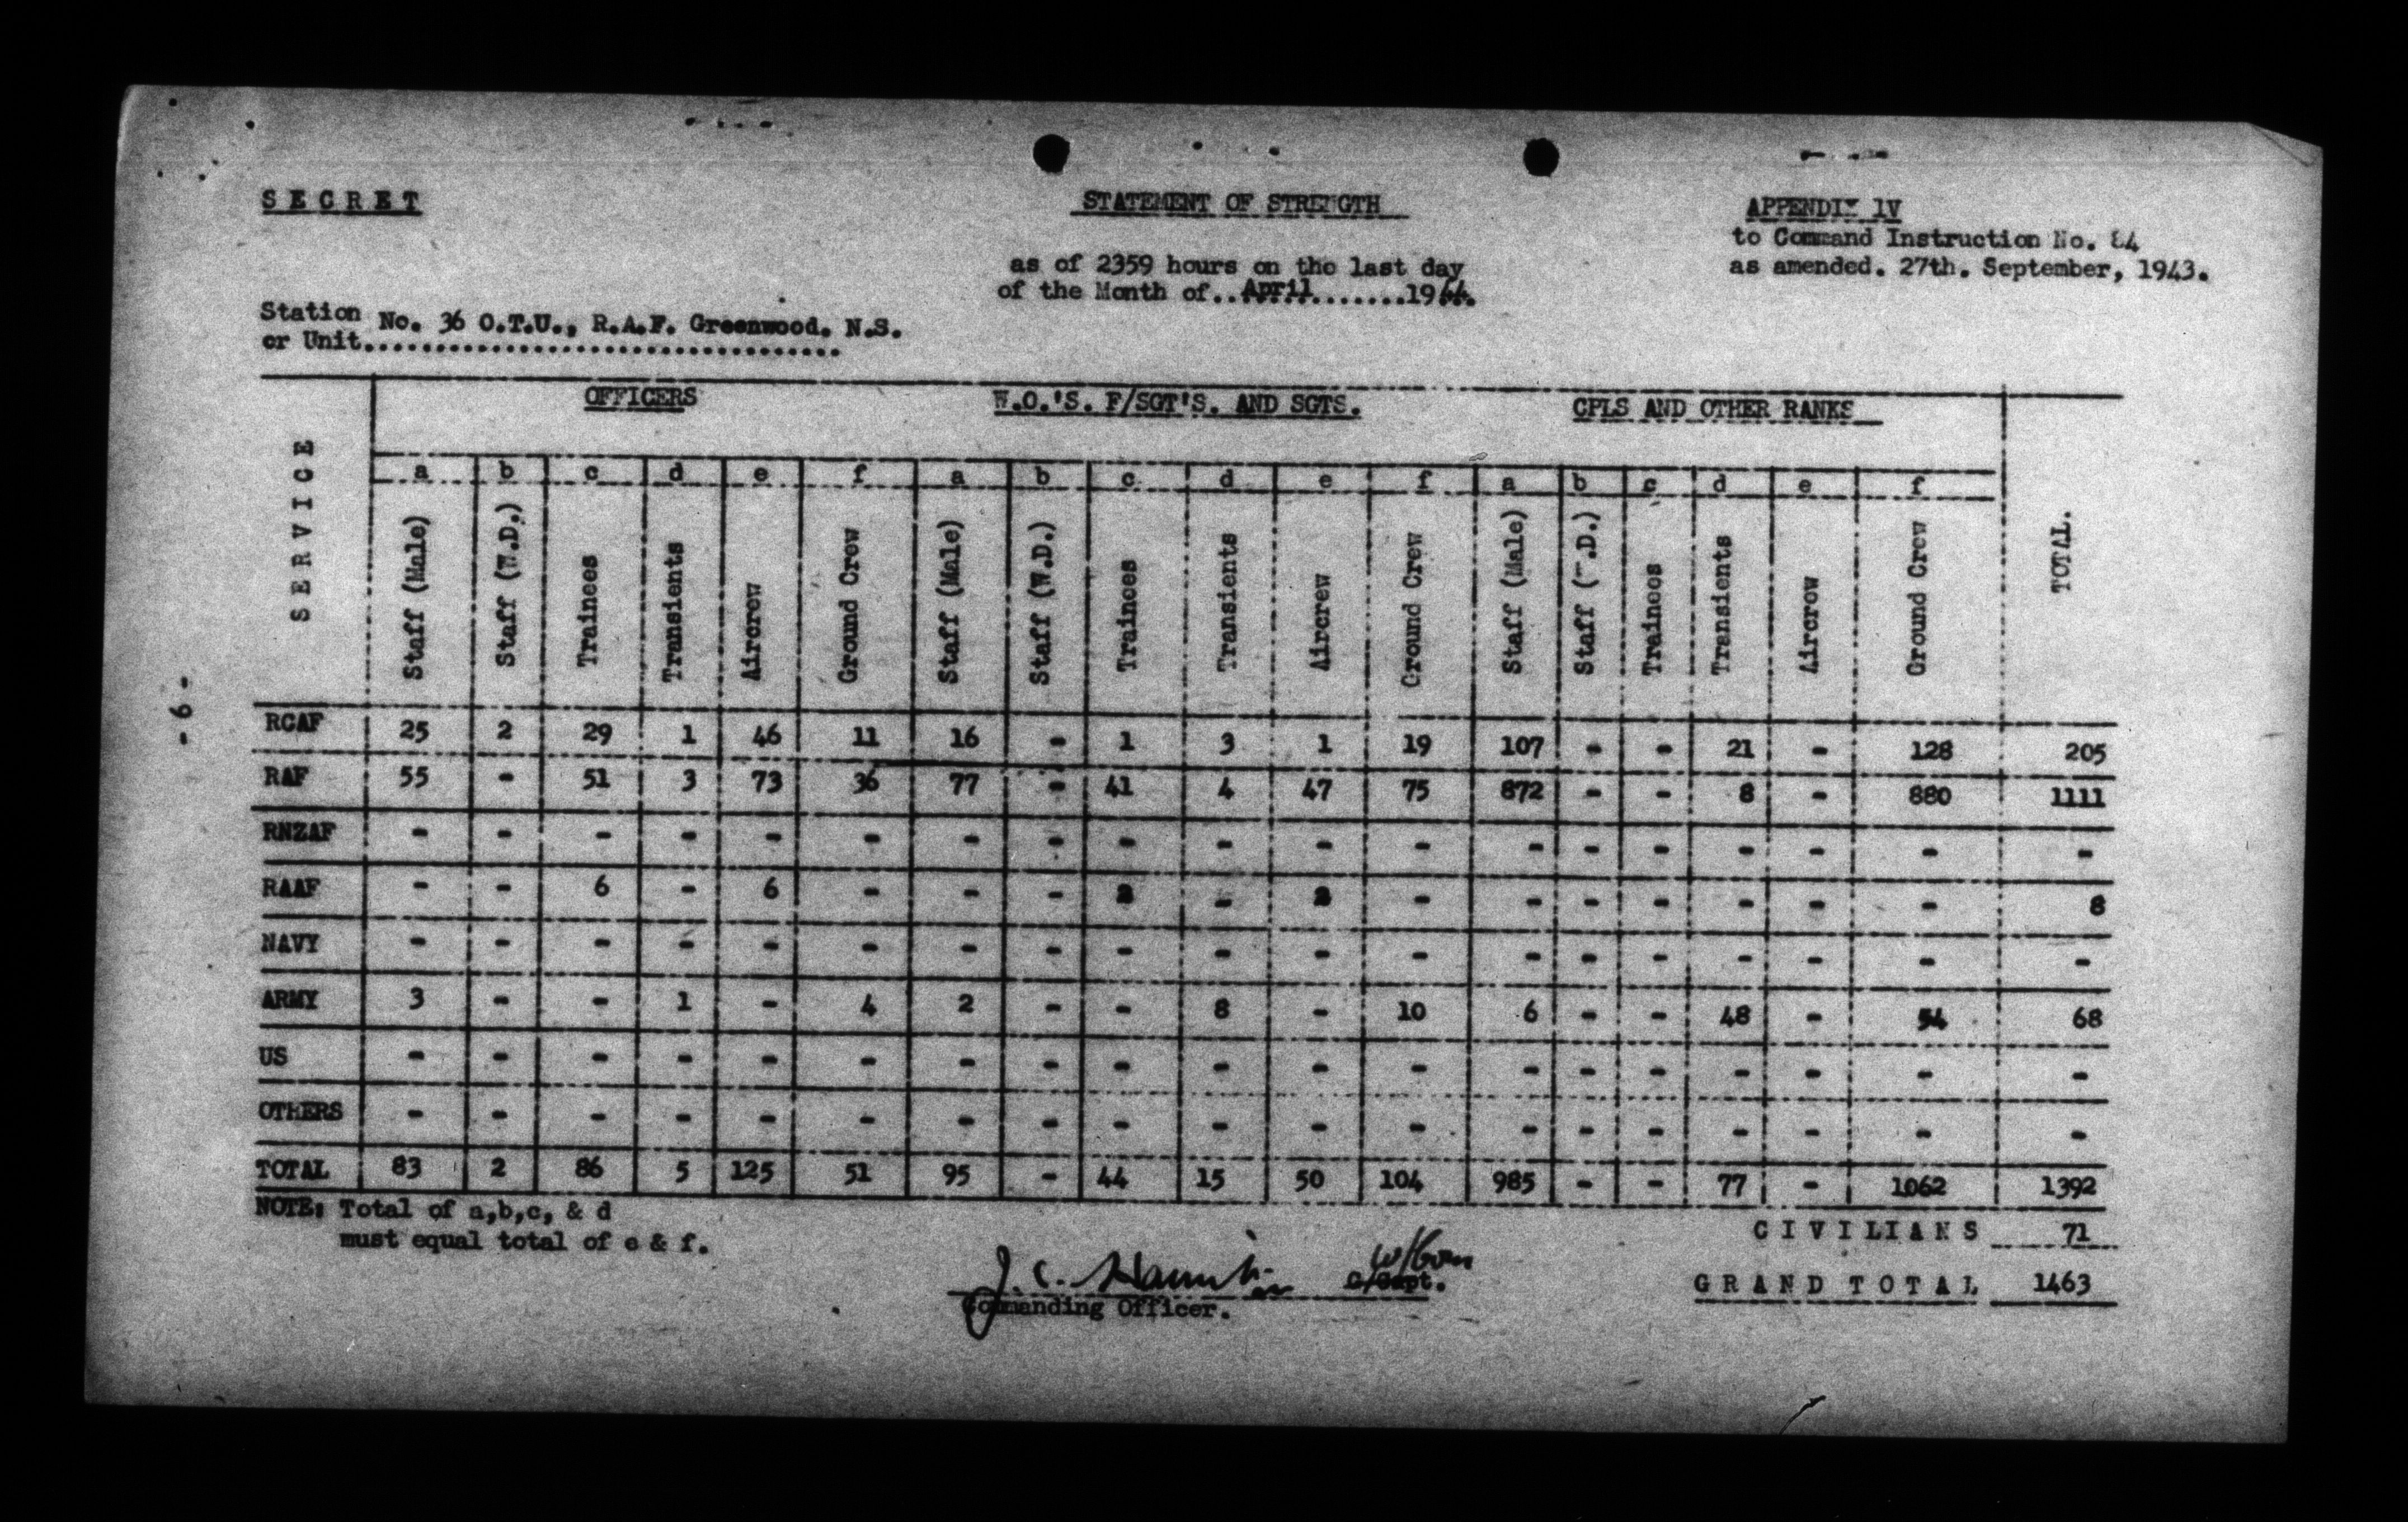 SECRET
STATEMENT OF STRENGTH
APPENDIX 1V
to Command Instruction No. 84
as amended. 27th. September, 1943.
as of 2359 hours on the last day
of the Month of..April........1944.
Station No. 36 O.T.U., R.A.F. Greenwood. N.S.
or Unit..................................
OFFICERS W.O.'S. F/SGT'S. AND SGTS. CPLS AND OTHER RANKS
SERVICE a b c d e f a b c d e f a b c d e f TOTAL.
Staff (Male) Staff (W.D.) Trainees Transients Aircrew Ground Crew Staff (Male) Staff (W.D.) Trainees Transients Aircrew Ground Crew Staff (Male) Staff ( .D.) Trainees Transients Aircrew Ground Crew
RCAF 25 2 29 1 46 11 16 - 1 3 1 19 107 - - 21 - 128 205
RAF 55 - 51 3 73 36 77 - 41 4 47 75 872 - - 8 - 880 1111
RNZAF - - - - - - - - - - - - - - - - - - -
RAAF - - 6 - 6 - - - 2 - 2 - - - - - - - 8
NAVY - - - - - - - - - - - - - - - - - - -
ARMY 3 - - 1 - 4 2 - - 8 - 10 6 - - 48 - 54 68
US - - - - - - - - - - - - - - - - - - -
OTHERS - - - - - - - - - - - - - - - - - - -
TOTAL 83 2 86 5 125 51 95 - 44 15 50 104 985 - - 77 - 1062 1392
NOTE: Total of a,b,c, & d
must equal total of e & f.
CIVILIANS 71
GRAND TOTAL 1463
J. C. W/Com
G/Capt.
Commanding Officer.
- 6 -